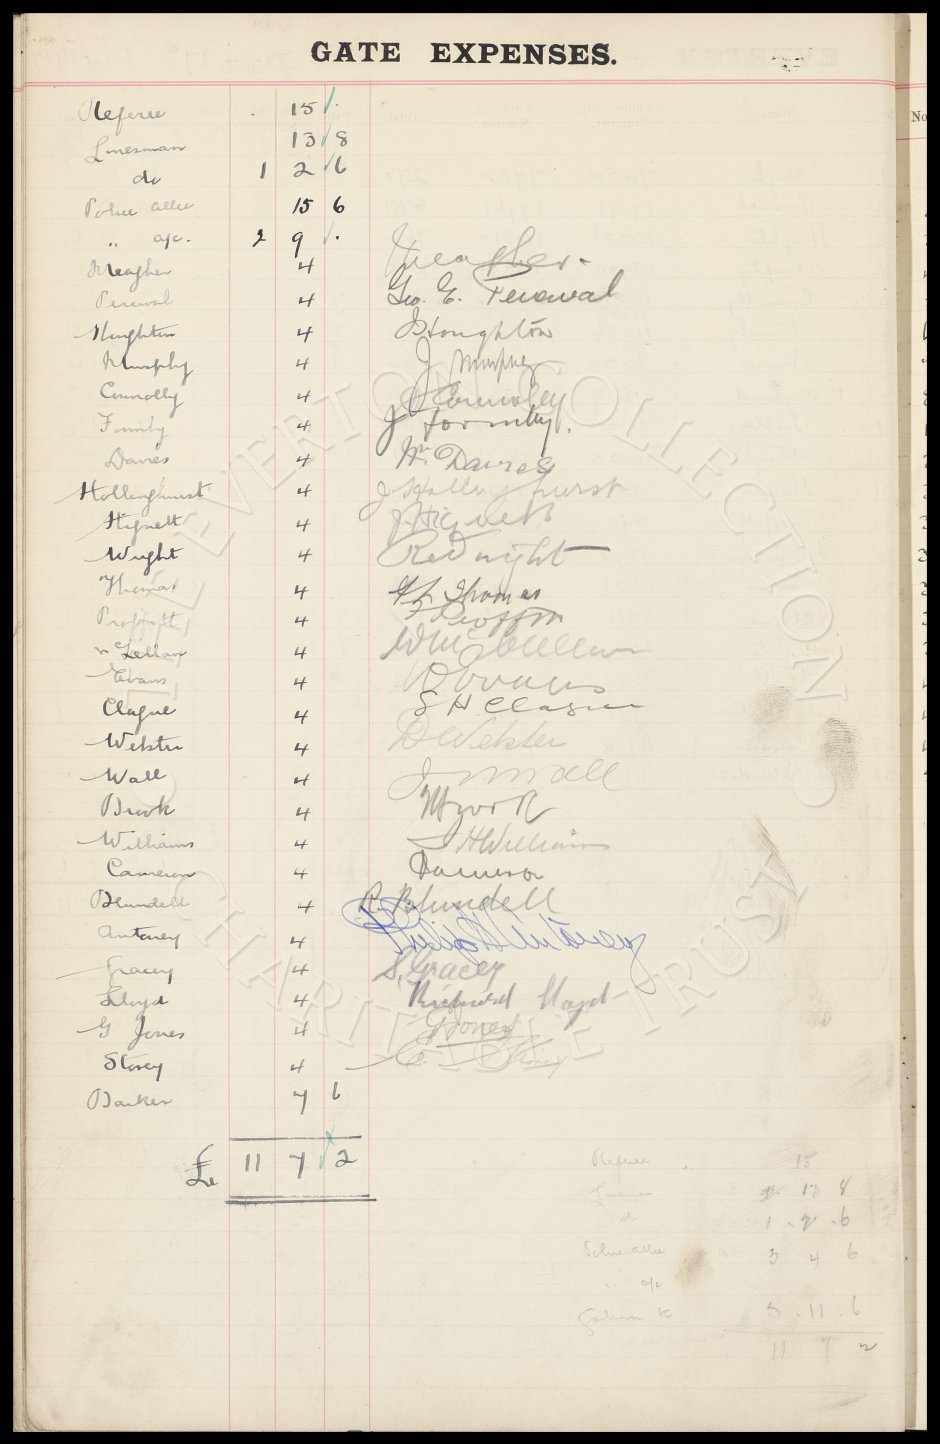 GATE EXPENSES.
No
Referee 15 .
Linesman 13 8
do 1 2 6
Police allce 15 6
" a/c. 2 9 .
Meagher 4 Meagher.
Percival 4 Geo. E. Percival
Houghton 4 Houghton
Murphy 4 J Murphy
Connolly 4 Connolly
Formby 4 J Formby.
Davies 4 W. Davies
Hollinghurst 4 J Hollinghurst
Hignett 4 J. Hignett
Wright 4 Wright
Thomas 4 Thomas
Proffitt 4 Proffitt
4
Evans 4 Evans
Clague 4 S H Clague
Webster 4 D Webster
Wall 4 J Wall
Brook 4 Brook
Williams 4 H Williams
Cameron 4 Cameron
Blundell 4 R. Blundell
Antoney 4 Philip Antoney
Gracey 4 S. Gracey
Lloyd 4 Richard Lloyd
G Jones 4 G Jones
Storey 4
Barker 7 6
£ 11 7 2
Referee 15
13 8
do 1 . 2 . 6
Police allce 3 4 6
a/c
5 . 11 . 6
11 7 2
THE EVERTON COLLECTION CHARITABLE TRUST